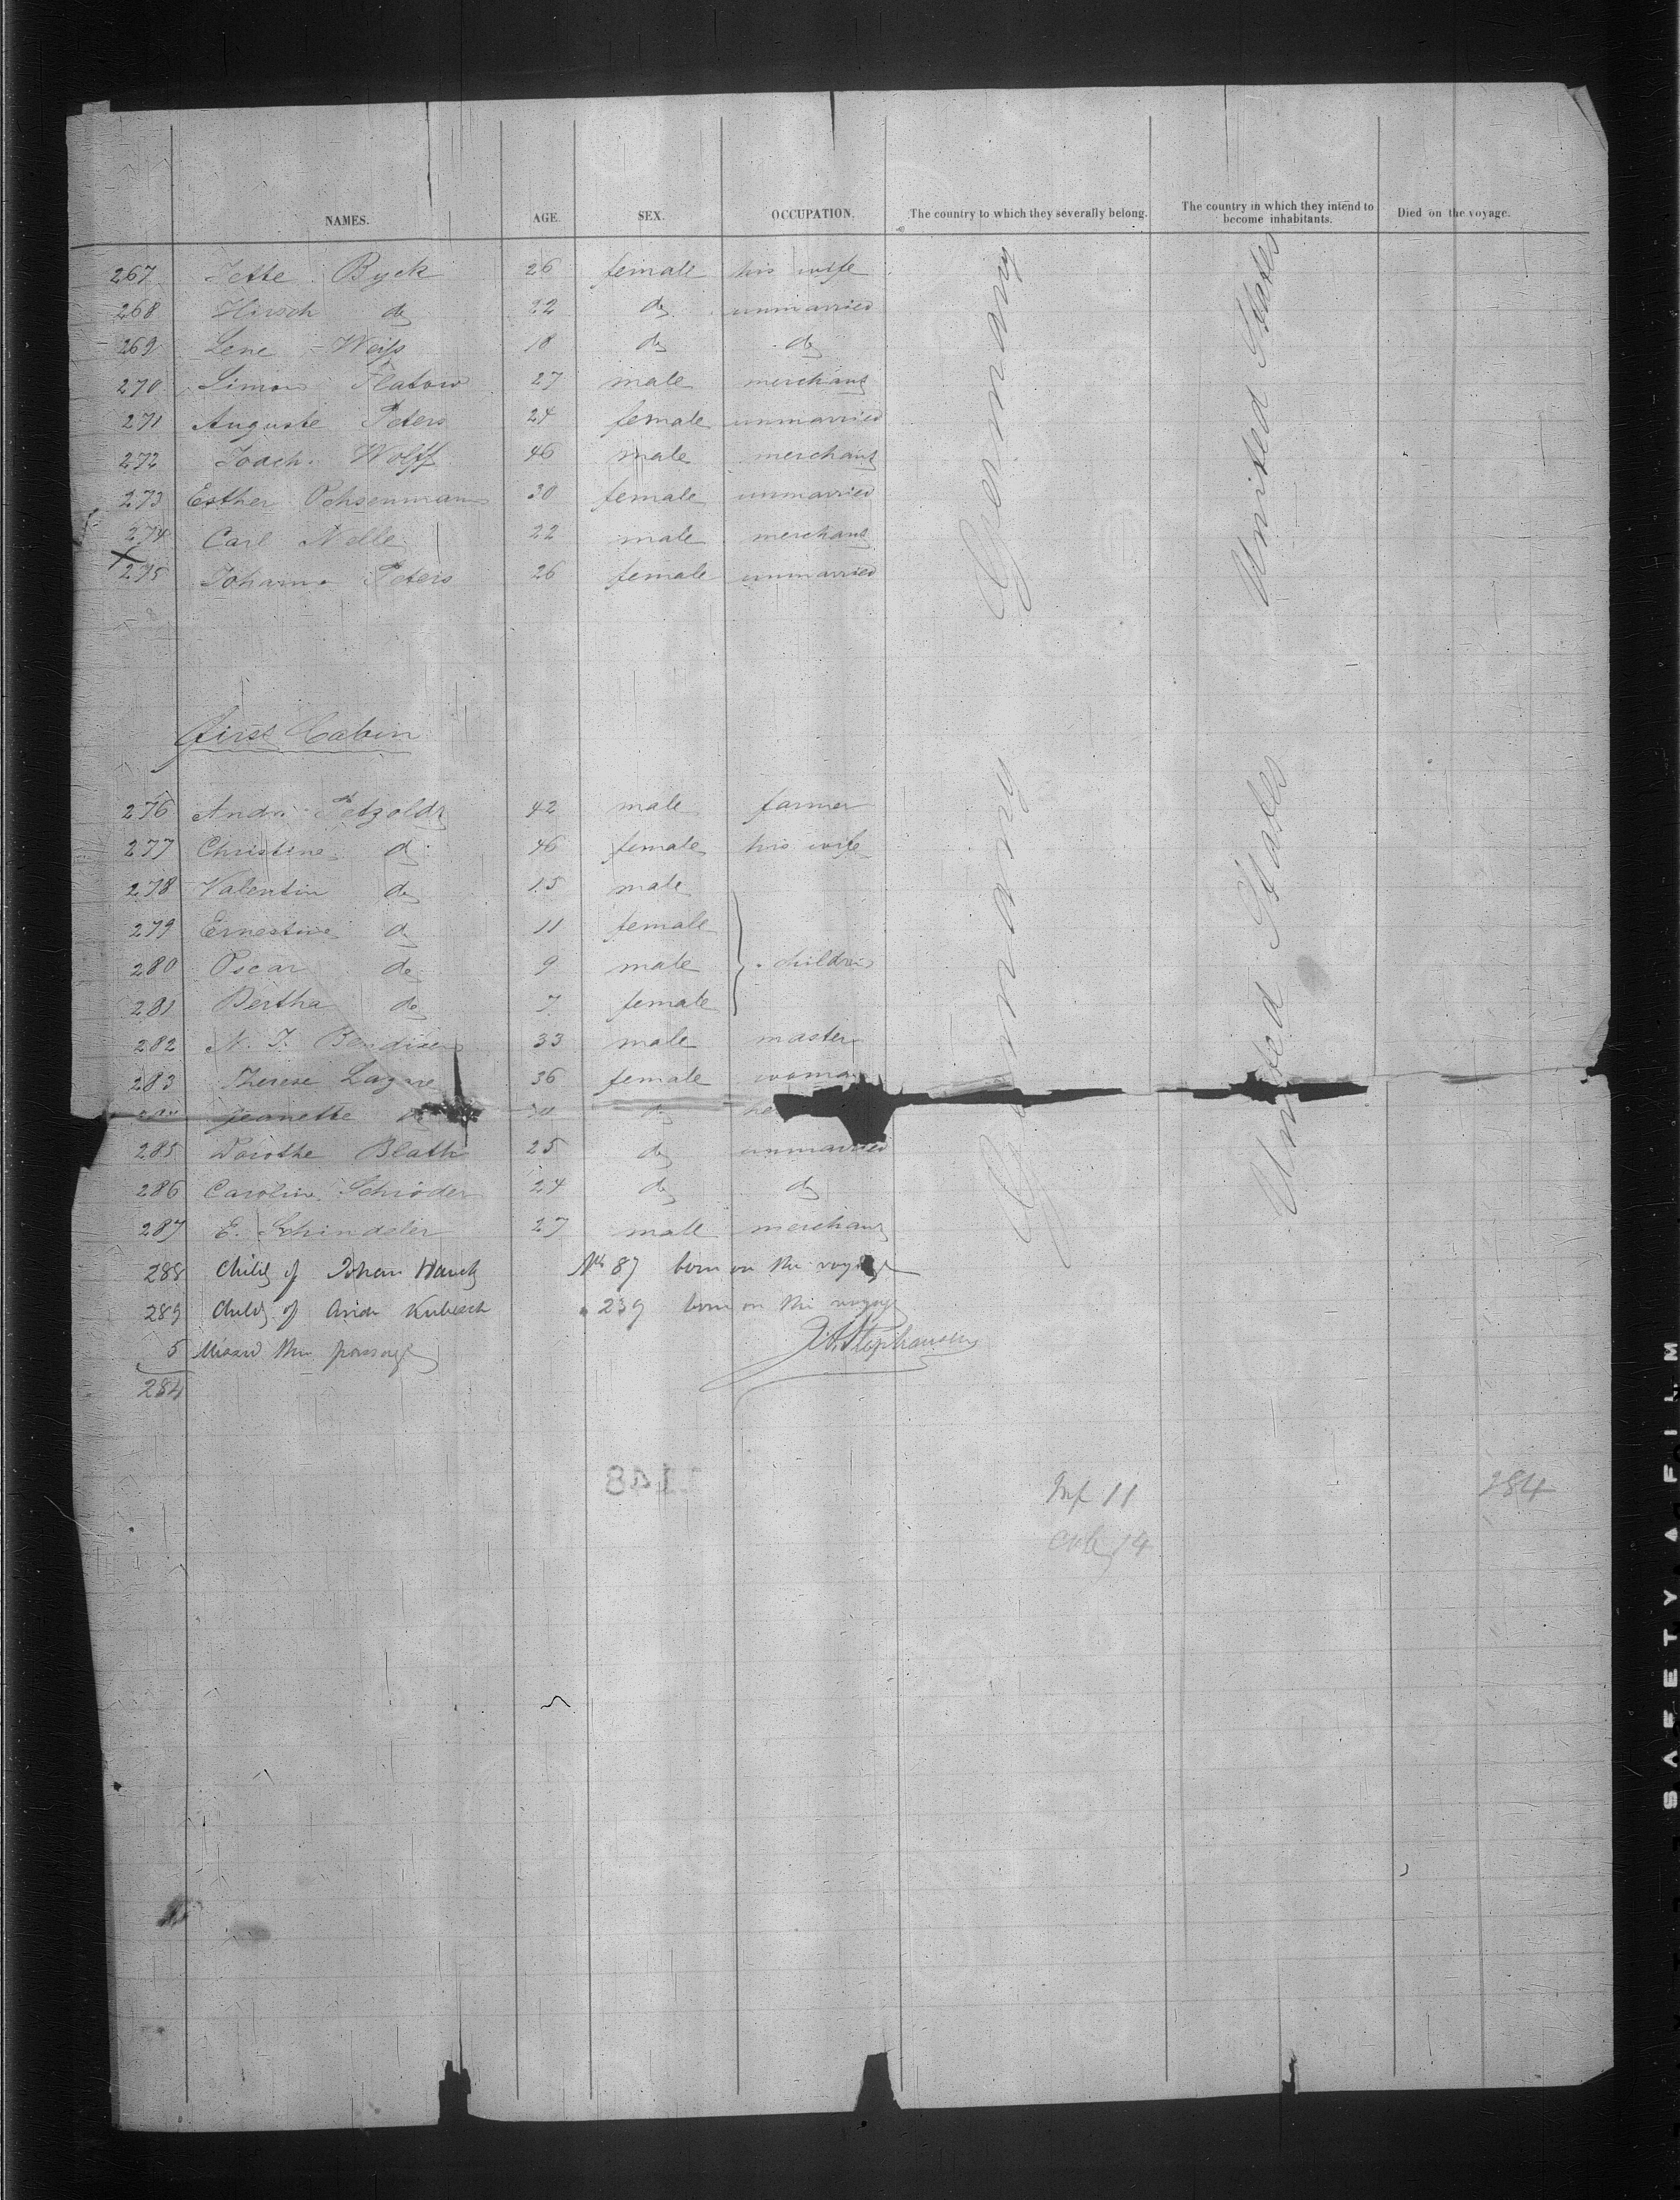 NAMES. AGE. SEX. OCCUPATION. The country to which they severally belong. The country in which they intend to become inhabitants. Died on the voyage.
267 Jette Byck 26 female his wife
268 Hirsch do 22 do unmarried
269 Lene Weiss 18 do do
270 Simon Flatow 27 male merchant
271 Auguste Peters 24 female unmarried
272 Joach. Wolff 46 male merchant
273 Esther Ochsenmann 30 female unmarried
274 Carl Nelle 22 male merchant
275 Johanna Peters 26 female unmarried
Germany
United States
First Cabin
276 Andr. Petzoldt 42 male farmer
277 Christine do 46 female his wife
278 Valentin do 15 male
279 Ernestine do 11 female
280 Oscar do 9 male children
281 Bertha do 7 female
282 N. J. Bendixen 33 male master
283 Therese 36 female woman
Jeanette do
285 Dorothe Blath 25 do unmarried
286 Carolin Schröder 24 do do
287 E. Schindeler 27 male merchant
Germany
United States
288 Child of Johan No 87 born on the voyage
289 Child of 239 born on the voyage
5 Missed the passage
284
284
Inf 11
SAFETY FILM